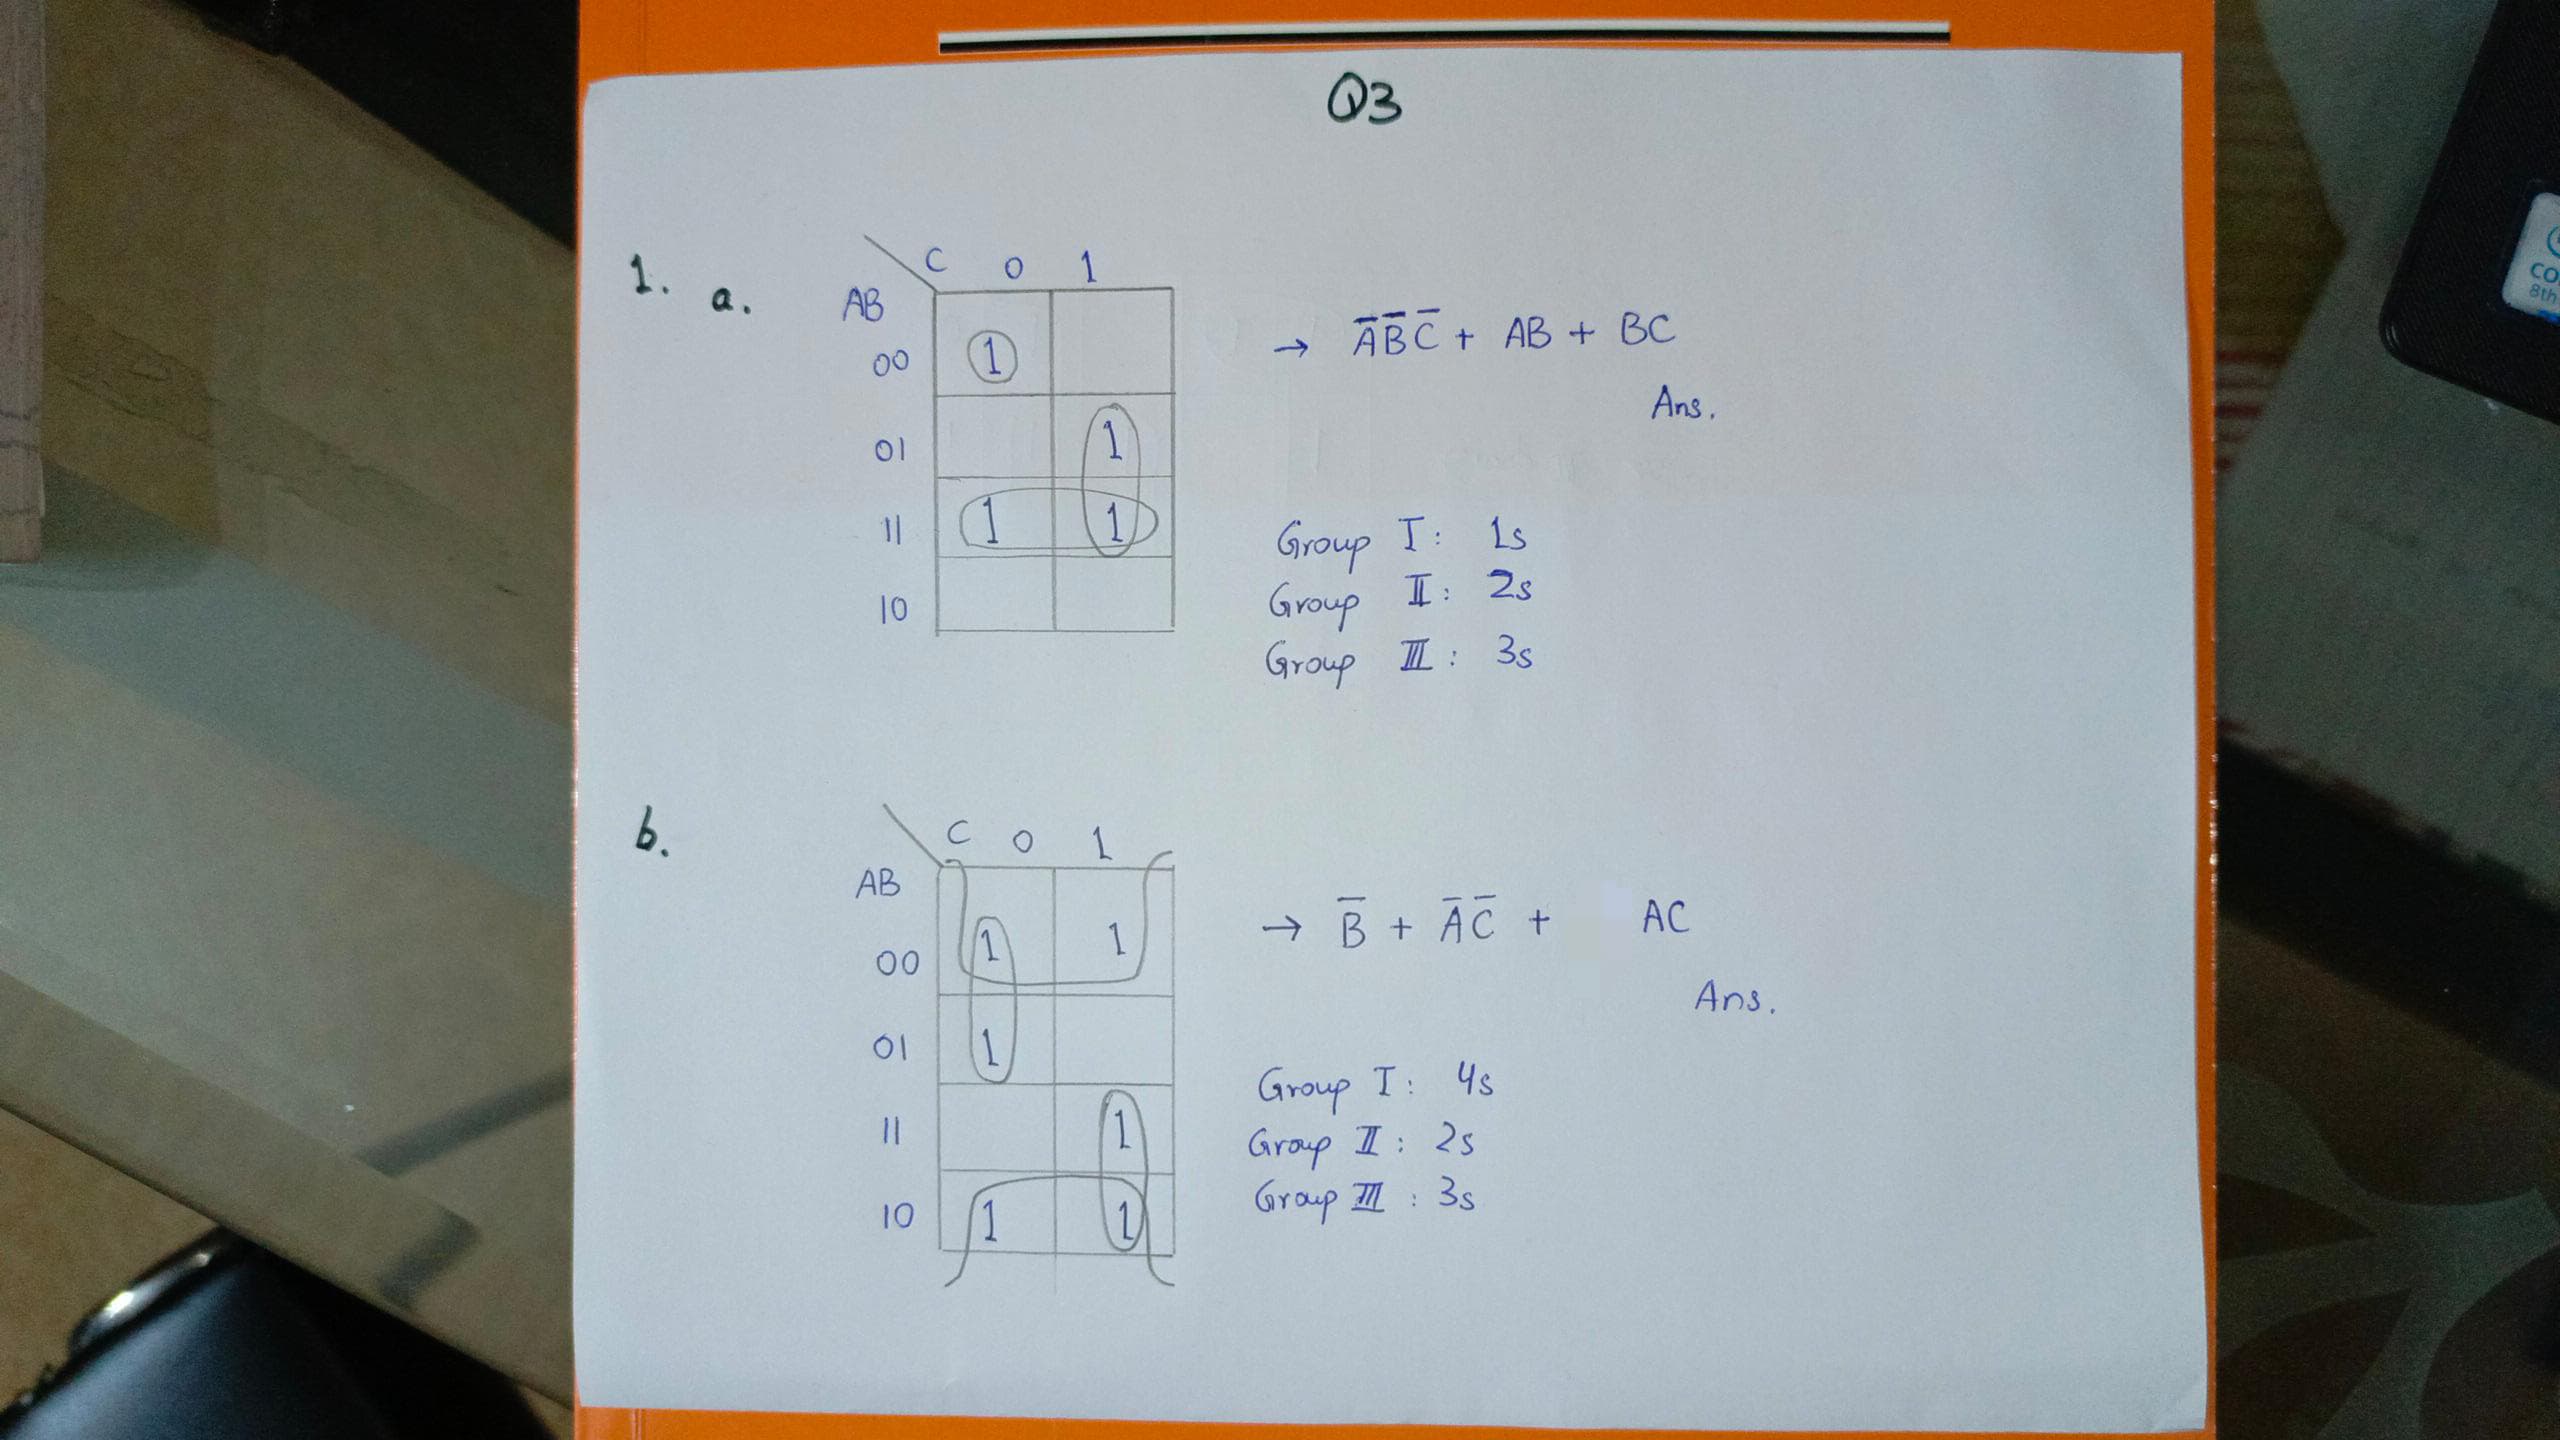 Q3
1. a.
C 0 1
AB
00 1
01 1
11 1 1
10
→ A̅ B̅ C̅ + AB + BC
Ans.
Group I : 1s
Group II : 2s
Group III : 3s
b.
C 0 1
AB
00 1 1
01 1
11 1
10 1 1
→ B̅ + A̅ C̅ + AC
Ans.
Group I : 4s
Group II : 2s
Group III : 3s
8th